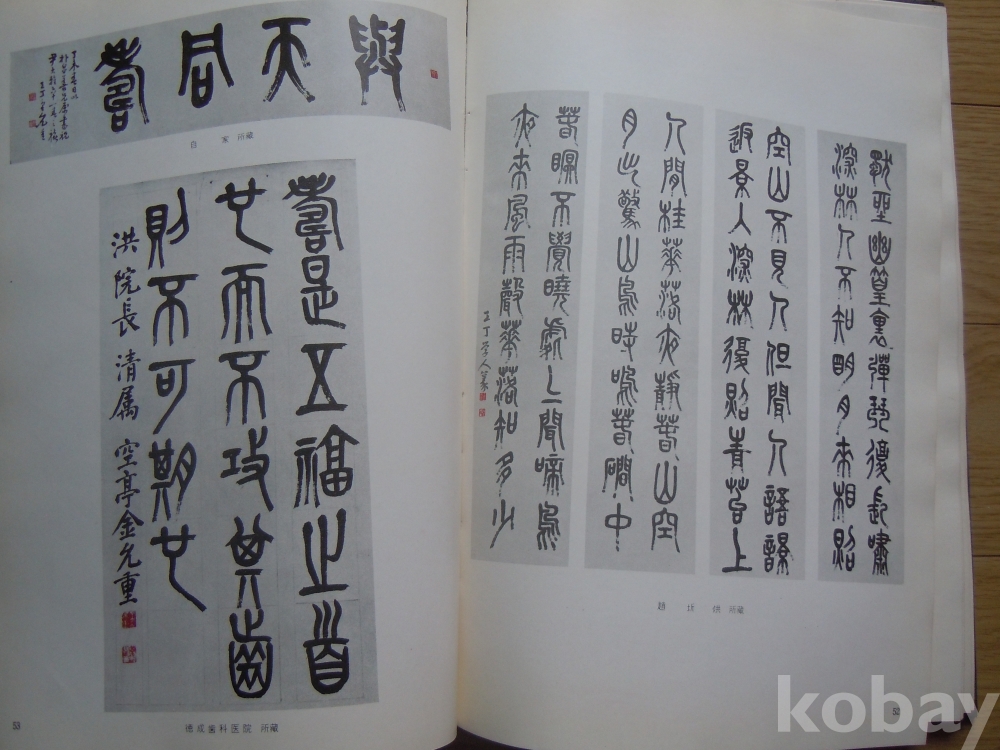 獨坐幽篁裏彈琴復長嘯
深林人不知明月來相照
空山不見人但聞人語響
返景入深林復照青苔上
人閒桂華落夜靜春山空
月出驚山鳥時鳴春磵中
春眠不覺曉處二聞啼鳥
夜來風雨聲華落知多少
所蔵
52
與天同壽
自家 所蔵
壽是五福之首
也而不攻其齒
則不可期也
洪院長 清属 空亭金允重
徳成歯科医院 所蔵
53
kobay